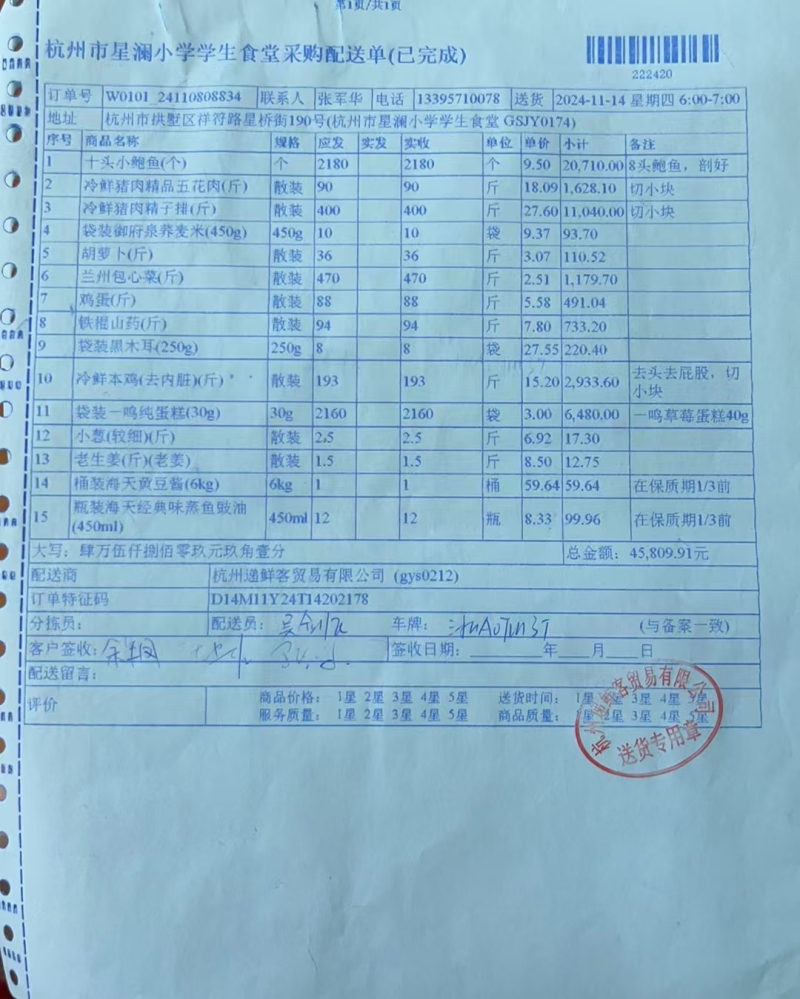 第1页/共1页
杭州市星澜小学学生食堂采购配送单(已完成)
222420
订单号 W0101_24110808834 联系人 张军华 电话 13395710078 送货 2024-11-14 星期四 6:00-7:00
地址 杭州市拱墅区祥符路星桥街190号(杭州市星澜小学学生食堂 GSJY0174)
序号 商品名称 规格 应发 实发 实收 单位 单价 小计 备注
1 十头小鲍鱼(个) 个 2180 2180 个 9.50 20,710.00 8头鲍鱼，剖好
2 冷鲜猪肉精品五花肉(斤) 散装 90 90 斤 18.09 1,628.10 切小块
3 冷鲜猪肉精子排(斤) 散装 400 400 斤 27.60 11,040.00 切小块
4 袋装御府泉荞麦米(450g) 450g 10 10 袋 9.37 93.70
5 胡萝卜(斤) 散装 36 36 斤 3.07 110.52
6 兰州包心菜(斤) 散装 470 470 斤 2.51 1,179.70
7 鸡蛋(斤) 散装 88 88 斤 5.58 491.04
8 铁棍山药(斤) 散装 94 94 斤 7.80 733.20
9 袋装黑木耳(250g) 250g 8 8 袋 27.55 220.40
10 冷鲜本鸡(去内脏)(斤) 散装 193 193 斤 15.20 2,933.60 去头去屁股，切小块
11 袋装一鸣纯蛋糕(30g) 30g 2160 2160 袋 3.00 6,480.00 一鸣草莓蛋糕40g
12 小葱(较细)(斤) 散装 2.5 2.5 斤 6.92 17.30
13 老生姜(斤)(老姜) 散装 1.5 1.5 斤 8.50 12.75
14 桶装海天黄豆酱(6kg) 6kg 1 1 桶 59.64 59.64 在保质期1/3前
15 瓶装海天经典味蒸鱼豉油(450ml) 450ml 12 12 瓶 8.33 99.96 在保质期1/3前
大写：肆万伍仟捌佰零玖元玖角壹分 总金额：45,809.91元
配送商 杭州递鲜客贸易有限公司 (gys0212)
订单特征码 D14M11Y24T14202178
分拣员： 配送员： 车牌： (与备案一致)
客户签收： 签收日期：________年____月____日
配送留言：
评价 商品价格： 1星 2星 3星 4星 5星 送货时间： 1星 2星 3星 4星 5星
服务质量： 1星 2星 3星 4星 5星 商品质量： 1星 2星 3星 4星 5星
杭州递鲜客贸易有限公司
送货专用章